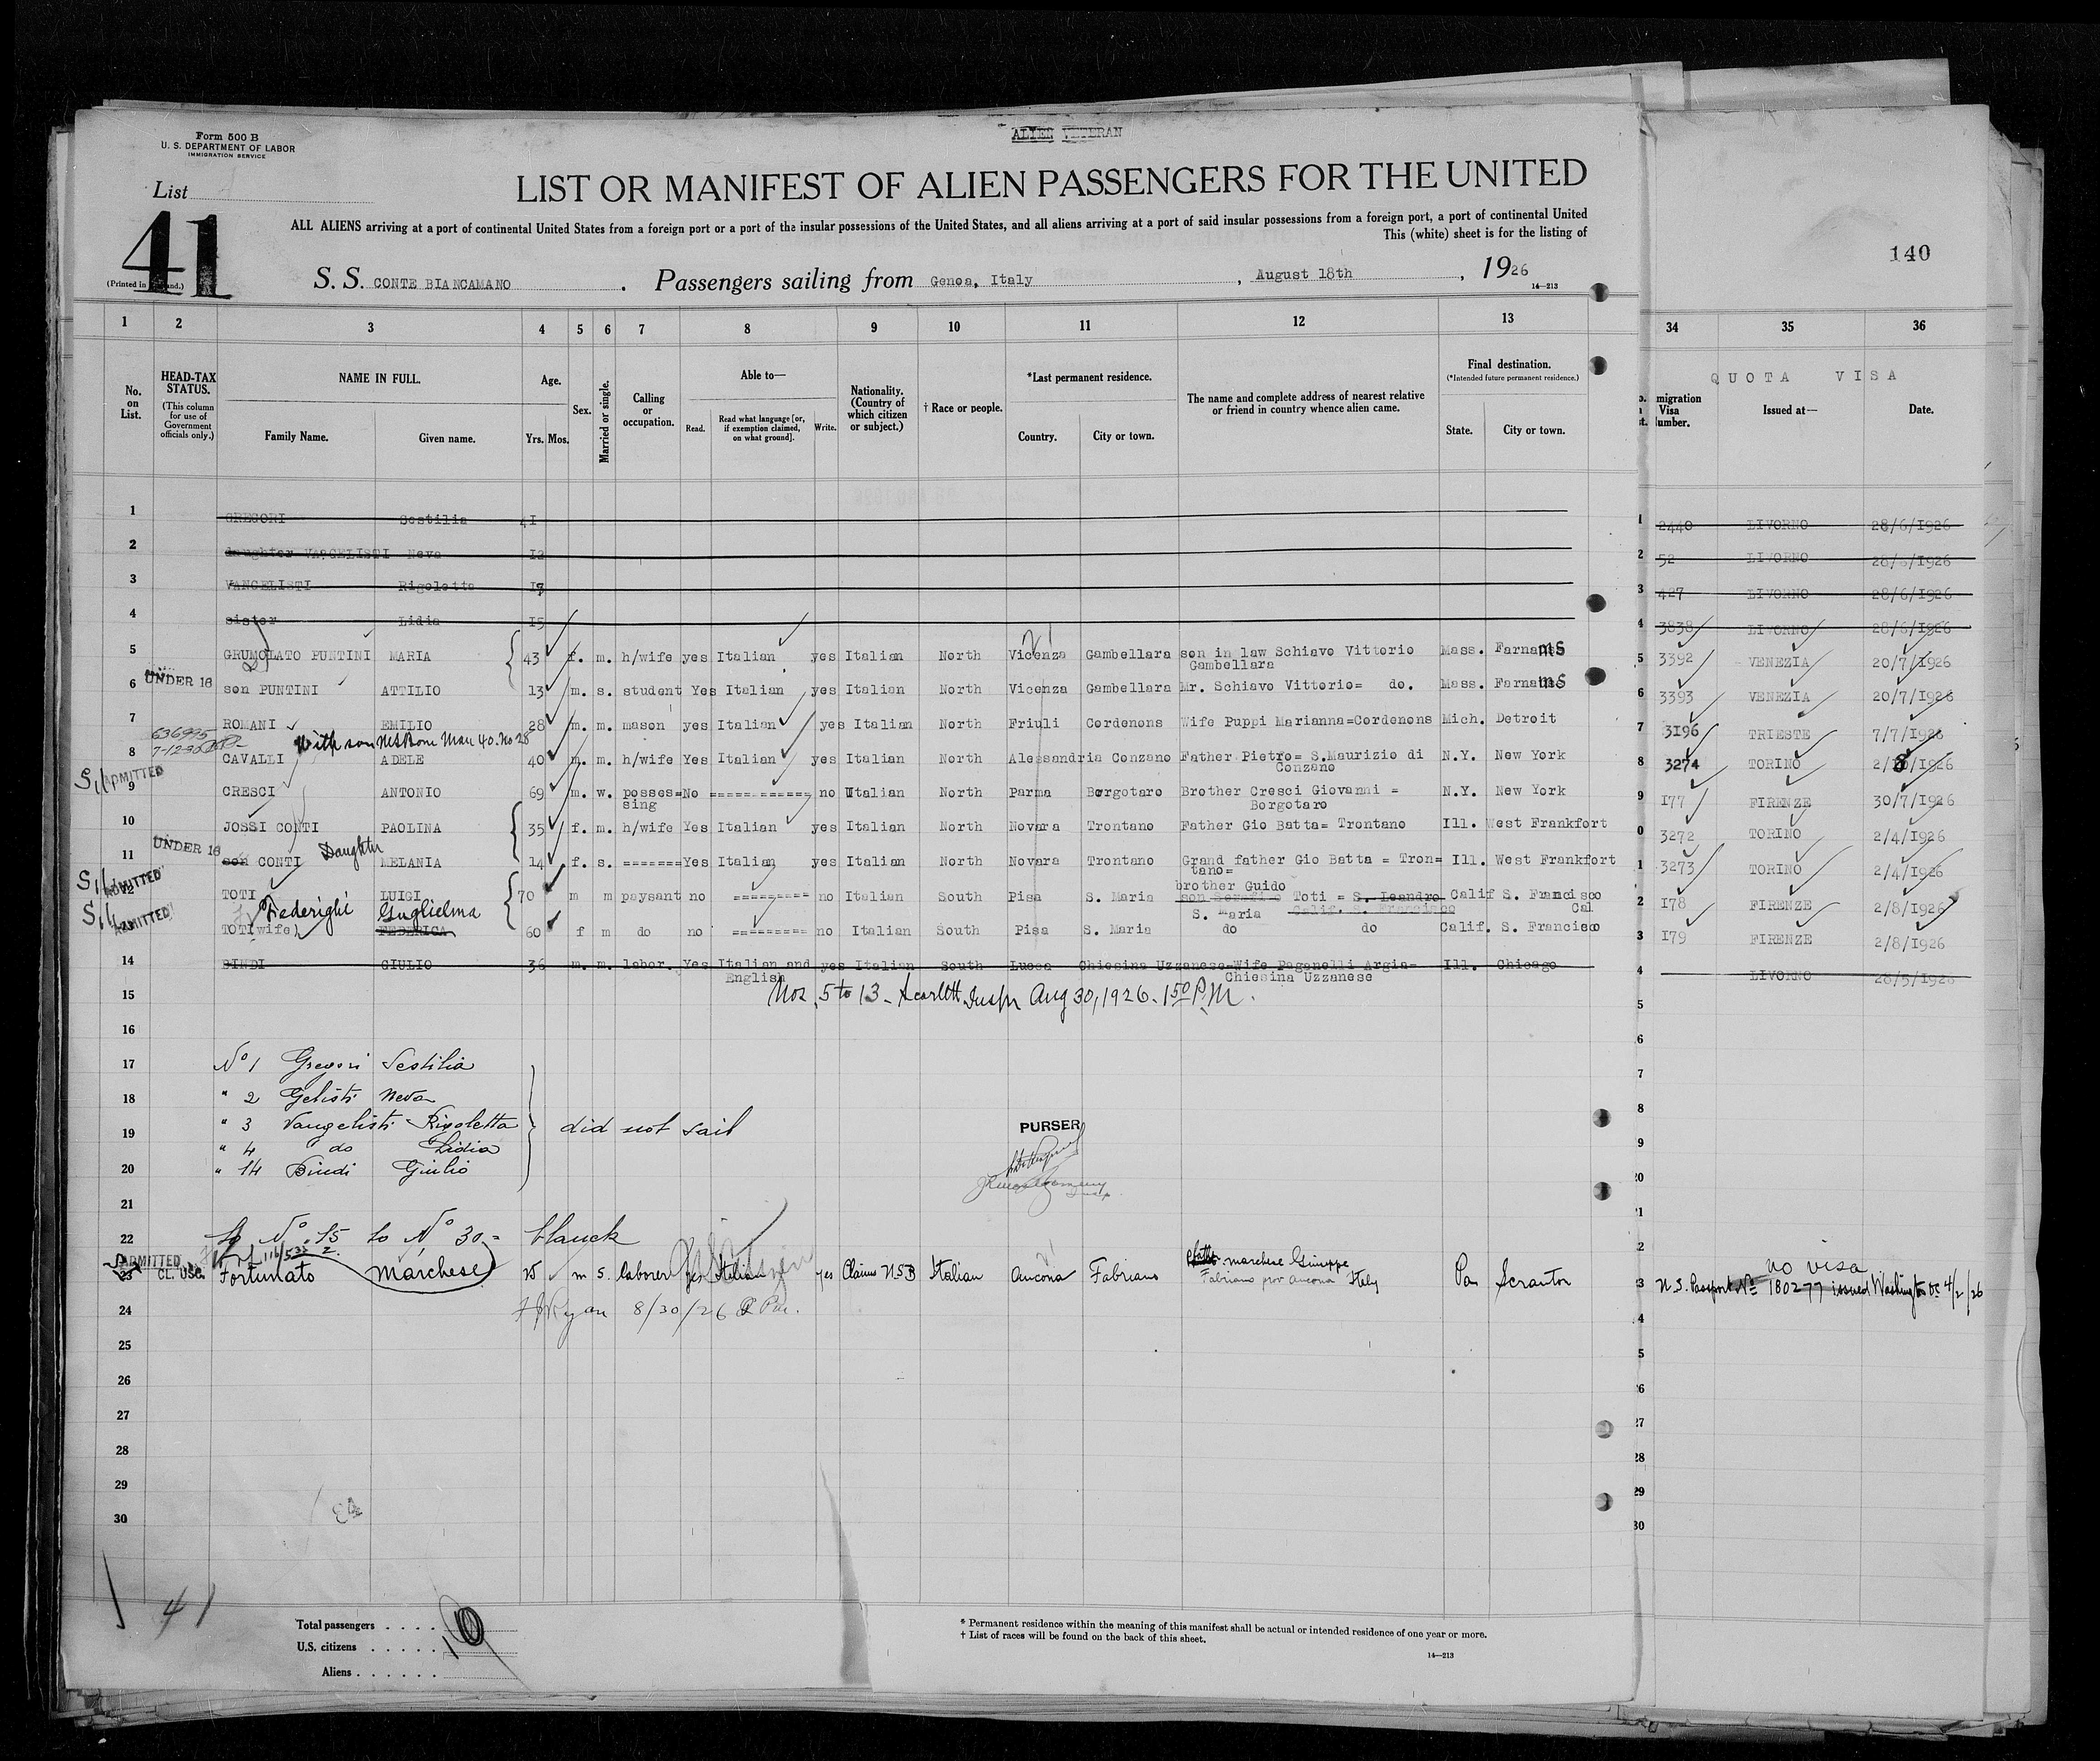 ALIEN VETERAN
Form 500 B
U. S. DEPARTMENT OF LABOR
IMMIGRATION SERVICE
List
41
(Printed in
LIST OR MANIFEST OF ALIEN PASSENGERS FOR THE UNITED
ALL ALIENS arriving at a port of continental United States from a foreign port or a port of the insular possessions of the United States, and all aliens arriving at a port of said insular possessions from a foreign port, a port of continental United
This (white) sheet is for the listing of
140
S. S. CONTE BIANCAMANO . Passengers sailing from Genoa, Italy , August 18th , 1926
14—213
1 2 3 4 5 6 7 8 9 10 11 12 13 34 35 36
No. on List.
HEAD-TAX STATUS.
(This column for use of Government officials only.)
NAME IN FULL.
Family Name. Given name.
Age.
Yrs. Mos.
Sex.
Married or single.
Calling or occupation.
Able to—
Read. Read what language [or, if exemption claimed, on what ground]. Write.
Nationality. (Country of which citizen or subject.)
† Race or people.
*Last permanent residence.
Country. City or town.
The name and complete address of nearest relative or friend in country whence alien came.
Final destination.
(*Intended future permanent residence.)
State. City or town.
QUOTA VISA
migration Visa umber.
Issued at—
Date.
1 GREGORI Sestilia 41 1 2440 LIVORNO 28/6/1926
2 daughter VANGELISTI Neva 12 2 52 LIVORNO 28/6/1926
3 VANGELISTI Rigoletta 3 427 LIVORNO 28/6/1926
4 sister Lidia 15 4 3838 LIVORNO 28/6/1926
5 GRUMOLATO PUNTINI MARIA 43 f. m. h/wife yes Italian yes Italian North Vicenza Gambellara son in law Schiavo Vittorio Mass. Farnams 5 3392 VENEZIA 20/7/1926
Gambellara
UNDER 16
6 son PUNTINI ATTILIO 13 m. s. student Yes Italian yes Italian North Vicenza Gambellara Mr. Schiavo Vittorio= do. Mass. Farnams 6 3393 VENEZIA 20/7/1926
7 ROMANI EMILIO 28 m. m. mason yes Italian yes Italian North Friuli Cordenons Wife Puppi Marianna=Cordenons Mich. Detroit 7 3196 TRIESTE 7/7/1926
636995
With son
8 CAVALLI ADELE 40 m. m. h/wife Yes Italian yes Italian North Alessandria Conzano Father Pietro= S.Maurizio di N.Y. New York 8 3274 TORINO
Conzano
ADMITTED
9 CRESCI ANTONIO 69 m. w. posses= No ============ no Italian North Parma Borgotaro Brother Cresci Giovanni = N.Y. New York 9 177 FIRENZE 30/7/1926
sing Borgotaro
10 JOSSI CONTI PAOLINA 35 f. m. h/wife Yes Italian yes Italian North Novara Trontano Father Gio Batta= Trontano Ill. West Frankfort 0 3272 TORINO 2/4/1926
UNDER 16 Daughter
11 son CONTI MELANIA 14 f. s. ======= Yes Italian yes Italian North Novara Trontano Grand father Gio Batta = Tron= Ill. West Frankfort 1 3273 TORINO 2/4/1926
tano=
ADMITTED
brother Guido
12 TOTI LUIGI 70 m m paysant no ========= no Italian South Pisa S. Maria son Serafino Toti = S. Leandro Calif S. Francisco 2 178 FIRENZE 2/8/1926
Federighi Guglielma S. Maria Calif. S. Francisco Cal
ADMITTED
TOTI(wife) FEDERICA 60 f m do no ========= no Italian South Pisa S. Maria do do Calif. S. Francisco 3 179 FIRENZE 2/8/1926
14 BINDI GIULIO 36 m. m. labor. Yes Italian and yes Italian South Lucca Chiesina Uzzanese=Wife Paganelli Argia= Ill. Chicago 4 LIVORNO 28/5/1926
English Chiesina Uzzanese
Nos. 5 to 13 - Scarlett Inspr Aug 30, 1926 - 1 50 P.M.
15 5
16 6
17 No 1 Gregori Sestilia 7
18 " 2 Gelisti Neva 8
" 3 Vangelisti Rigoletta
19 did not sail 9
" 4 do Lidia
20 " 14 Bindi Giulio 20
PURSER
21 21
22 No. 15 to No 30 = blanck 2
ADMITTED CL. USC.
23 Fortunato Marchese 25 m s. laborer yes Italian yes Claims USB Italian Ancona Fabriano Marchese Giuseppe Pa Scranton 3 no visa
Fabriano prov Ancona Italy
U.S. Passport No 180277 issued Washington DC 4/2/26
24 Ryan 8/30/26 4
25 5
26 26
27 27
28 28
29 29
30 30
41
Total passengers . . . . 10
U.S. citizens . . . . .
Aliens . . . . . .
* Permanent residence within the meaning of this manifest shall be actual or intended residence of one year or more.
† List of races will be found on the back of this sheet.
14—213